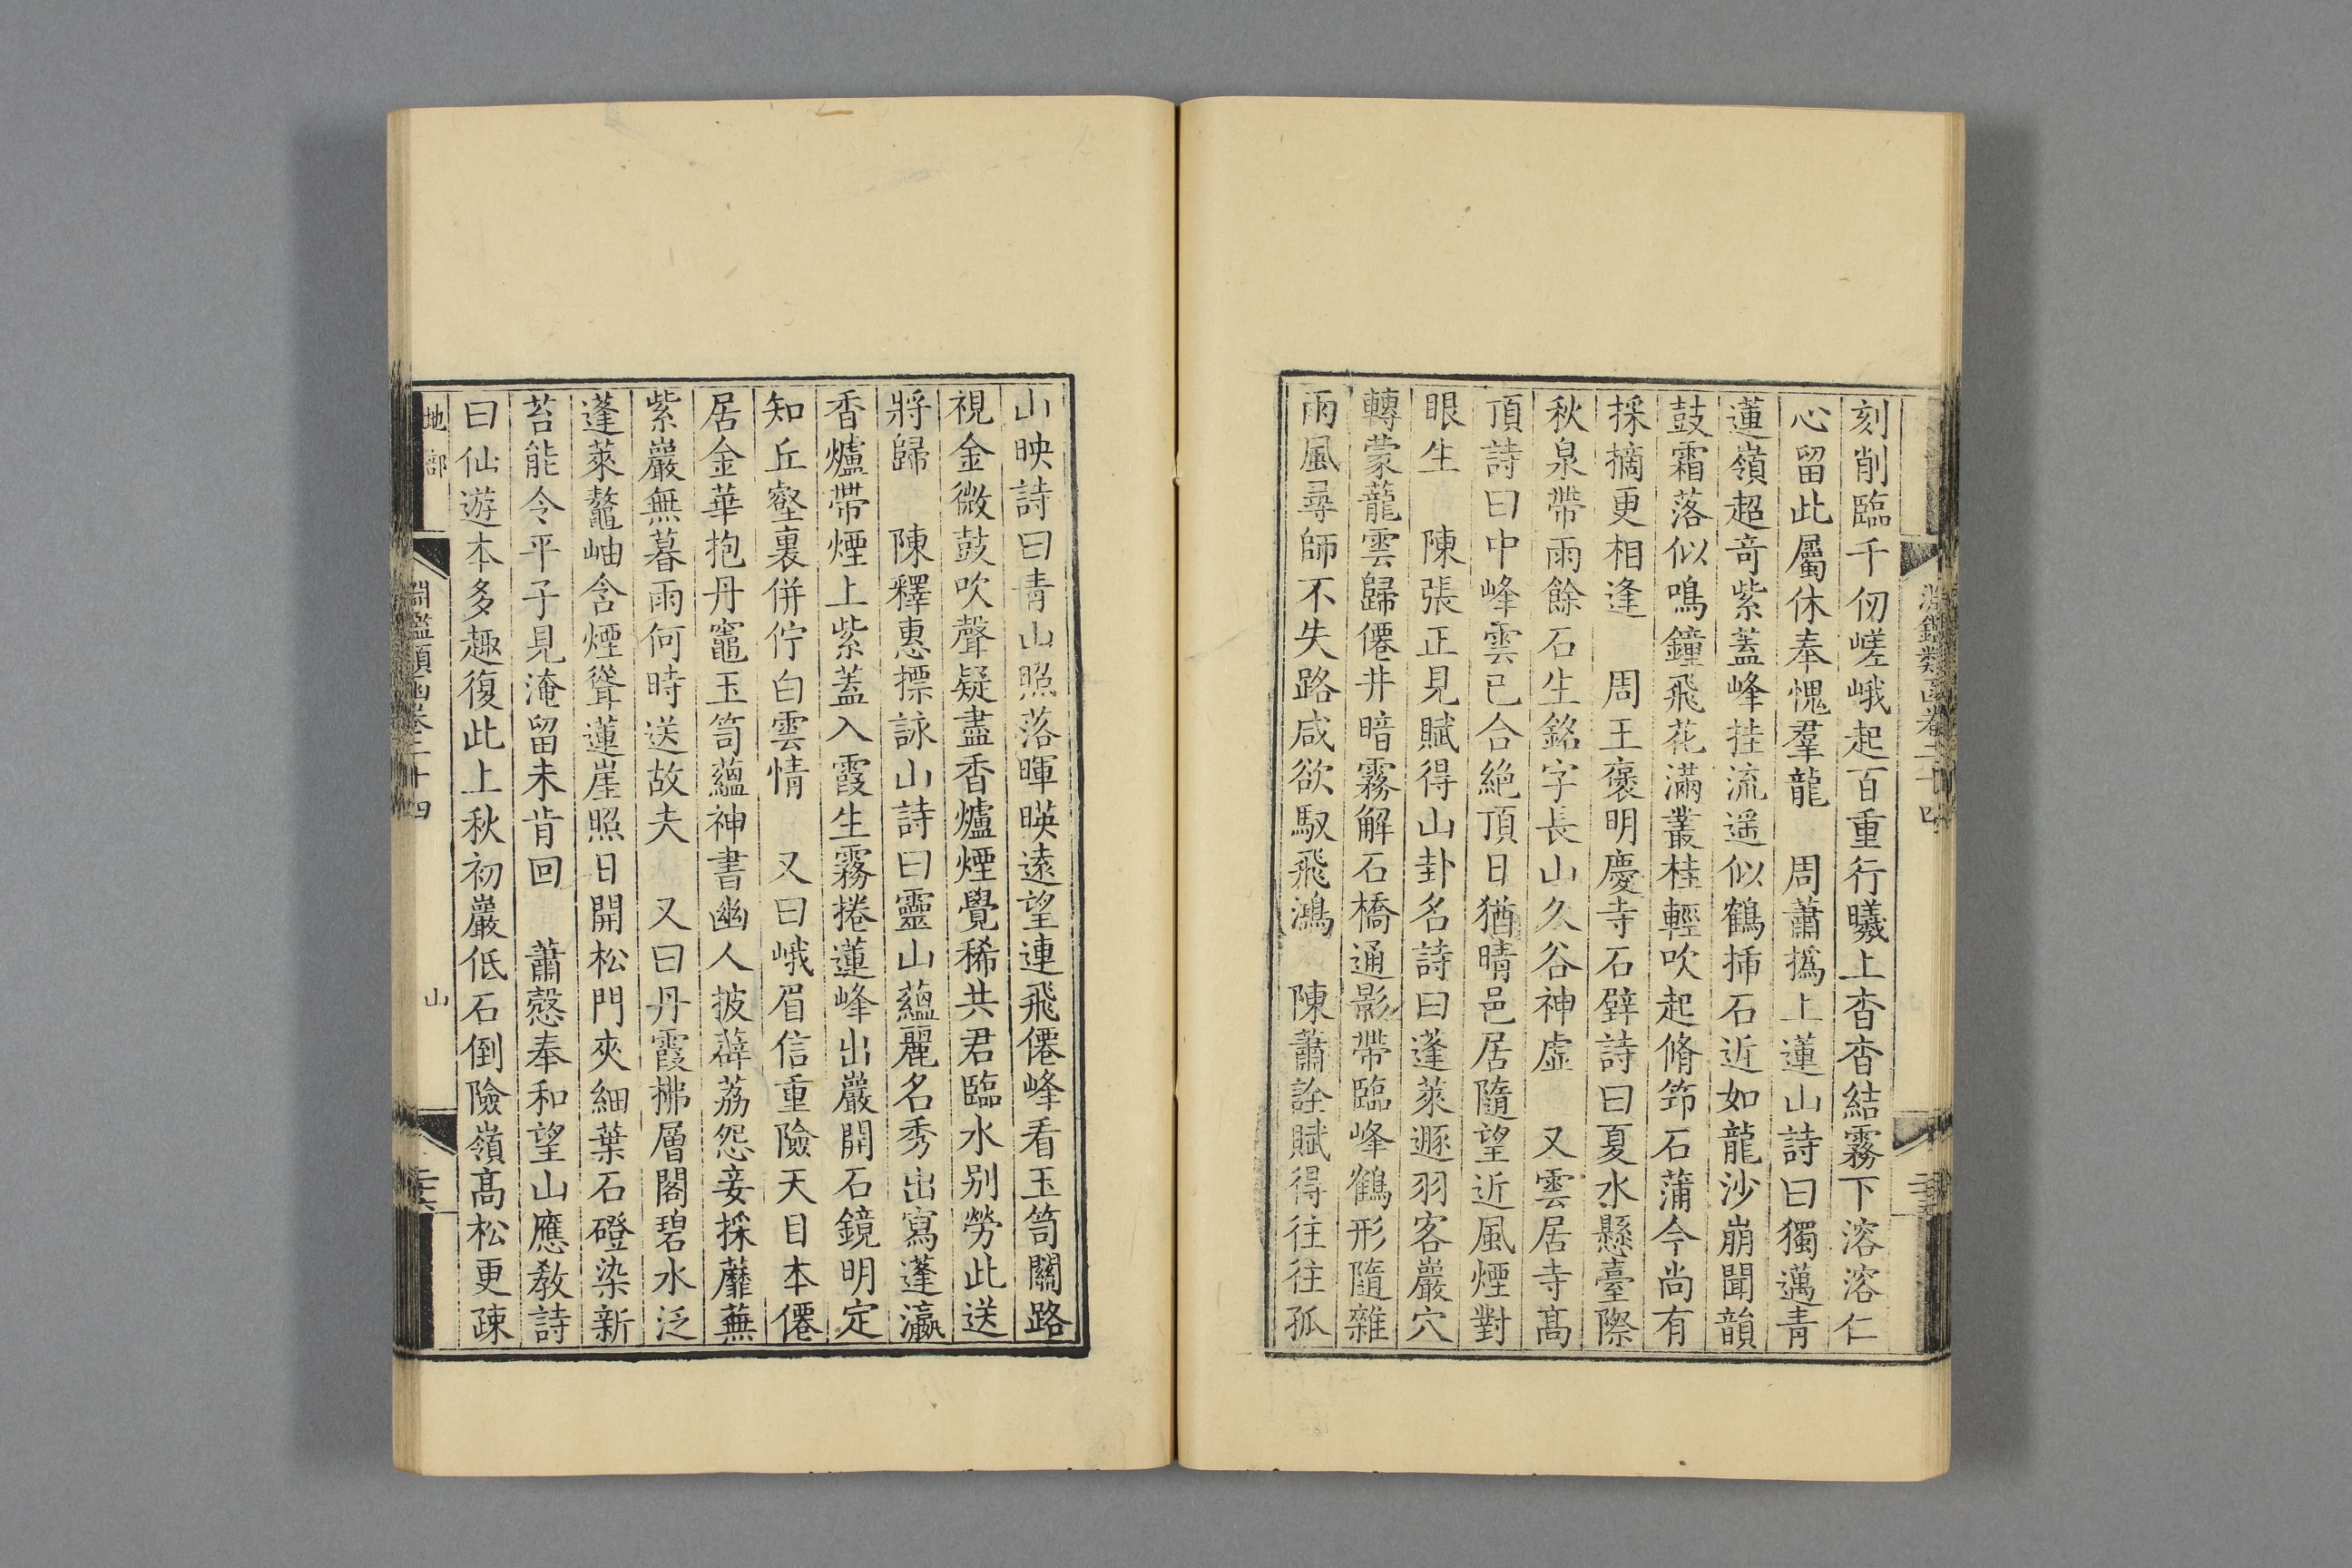 淵鑑類函卷二十四
刻削臨千仞嵯峨起百重行曦上杳杳結霧下溶溶仁
心留此屬休奉愧羣龍　周蕭撝上蓮山詩曰獨邁青
蓮嶺超竒紫蓋峰挂流遥似鶴揷石近如龍沙崩聞韻
鼓霜落似鳴鐘飛花滿叢桂輕吹起脩笻石蒲今尚有
採摘更相逢　周王褒明慶寺石壁詩曰夏水懸臺際
秋泉帶雨餘石生銘字長山久谷神虛　又雲居寺髙
頂詩曰中峰雲已合絶頂日猶晴邑居隨望近風煙對
眼生　陳張正見賦得山卦名詩曰蓬萊遯羽客巖穴
轉蒙蘢雲歸僊井暗霧解石橋通影帶臨峰鶴形隨雜
雨風尋師不失路咸欲馭飛鴻　陳蕭詮賦得往往孤
山映詩曰青山照落暉暎遠望連飛僊峰看玉笥關路
視金微鼓吹聲疑盡香爐煙覺稀共君臨水别勞此送
將歸　陳釋惠摽詠山詩曰靈山蘊麗名秀出寫蓬瀛
香爐帶煙上紫蓋入霞生霧捲蓮峰出巖開石鏡明定
知丘壑裏併佇白雲情　又曰峨眉信重險天目本僊
居金華抱丹竈玉笥蘊神書幽人披薜荔怨妾採蘼蕪
紫巖無暮雨何時送故夫　又曰丹霞拂層閣碧水泛
蓬萊鼇岫含煙聳蓮崖照日開松門夾細葉石磴染新
苔能令平子見淹留未肯回　蕭愨奉和望山應教詩
曰仙遊本多趣復此上秋初巖低石倒險嶺髙松更疎
地部
淵鑑類函卷二十四
山
二十六